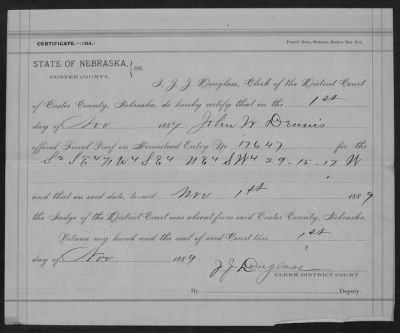 CERTIFICATE.—(104.)
STATE OF NEBRASKA, } ss.
CUSTER COUNTY.
I, J J Douglass, Clerk of the District Court
of Custer County, Nebraska, do hereby certify that on the 1st
day of Nov 1889 John W Dennis
offered Final Proof on Homestead Entry No 17647 for the
S2 SE4 NW4 SE4 NE4 SW4 29-15-17 W
and that on said date, to-wit Nov 1st 1889
the Judge of the District Court was absent from said Custer County, Nebraska.
Witness my hand and the seal of said Court this 1st
day of Nov 1889.
J. J. Douglass
CLERK DISTRICT COURT.
By Deputy.